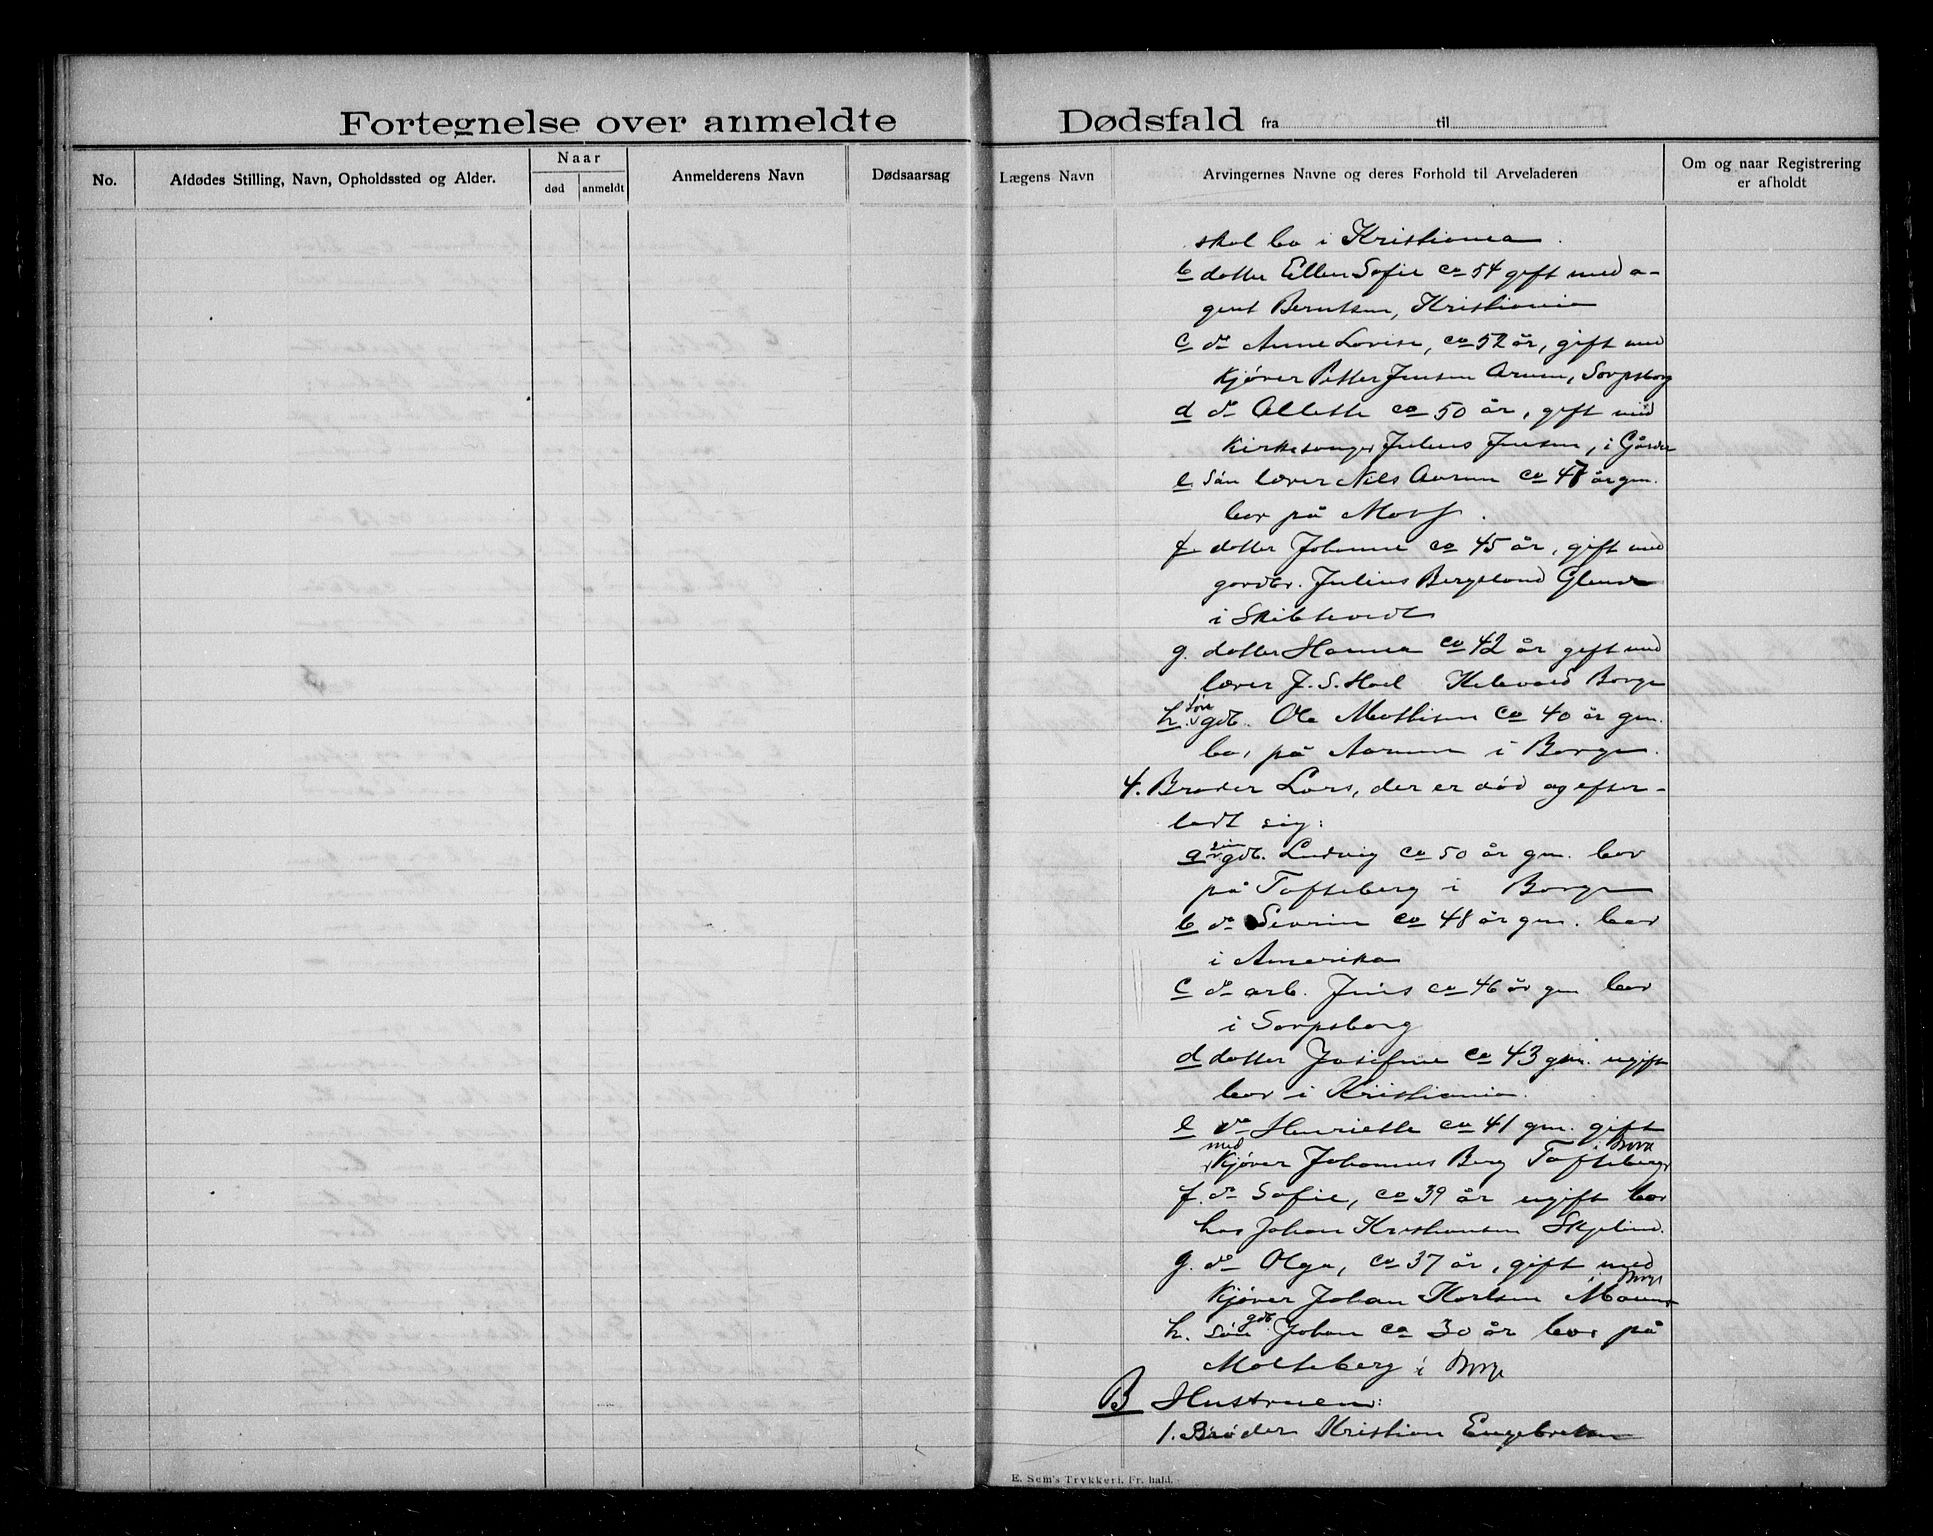 Fortegnelse over anmeldte
Dødsfald fra til
No.
Afdødes Stilling, Navn, Opholdssted og Alder.
Naar
død
anmeldt
Anmelderens Navn
Dødsaarsag
Lægens Navn
Arvingernes Navne og deres Forhold til Arveladeren
Om og naar Registrering
er afholdt
skal bo i Kristiania.
b datter Ellen Sofie ca 54 gift med a-
gent Berntsen, Kristiania
c do Anne Lovise, ca 52 år, gift med
kjører Petter Jensen Arum, Sarpsborg
d do Allette ca 50 år, gift med
kirkesanger Julius Jensen, i
e. Søn lærer Nils Aarum ca 47 år gm.
bor på
f datter Johanne ca 45 år, gift med
gårdbr. Julius Bergslund
i Skibtvedt
g. datter Hanna ca 42 år gift med
lærer J. S. Hoel Borge
h. søn gdb. Ole Mathisen ca 40 år gm.
bor på Aarum i Borge.
4. Broder Lars, der er død og efter-
ladt sig:
a søn gdb. Ludvig ca 50 år gm. bor
på Tofteberg i Borge
b do Sevrin ca 48 år gm. bor
i Amerika
c do arb. Jens ca 46 år gm bor
i Sarpsborg
d datter Josefine ca 43 gm. ugift
bor i Kristiania.
e do Henriette ca 41 gm. gift
med kjører Johannes Berg Tofteberg i Borge
f. do Sofie, ca 39 år ugift bor
hos Johan Kristiansen
g. do Olga, ca 37 år, gift med
kjører Johan Karlsen i Borge
h. Søn gdb. Johan ca 30 år bor på
Molteberg i Borge
B Hustruen:
1. Broder Kristian Engebretsen
E. Sem's Trykkeri, Fr. hald.